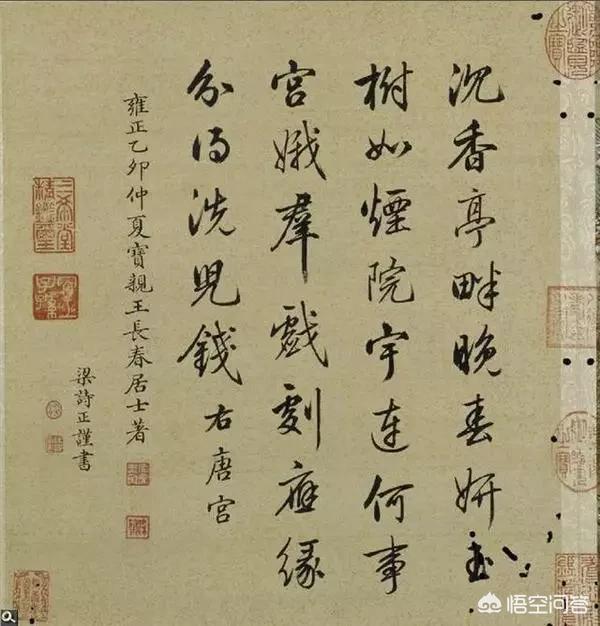 沈香亭畔晚春妍玉
樹如煙院宇連何事
宮娥羣戲劇應緣
分得洗兒錢右唐宮
雍正乙卯仲夏寶親王長春居士著
梁詩正謹書
三希堂精鑑璽
宜子孫
悟空问答